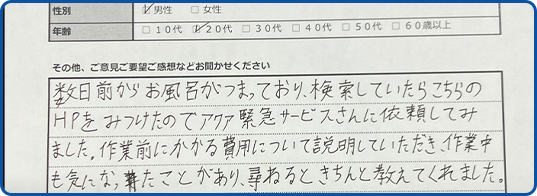 性別 ☑男性 □女性
年齢 □10代 ☑20代 □30代 □40代 □50代 □60歳以上
その他、ご意見ご要望ご感想などお聞かせください
数日前からお風呂がつまっており、検索していたらこちらの
HPをみつけたのでアクア緊急サービスさんに依頼してみ
ました。作業前にかかる費用について説明していただき、作業中
も気になったことがあり、尋ねるときちんと教えてくれました。